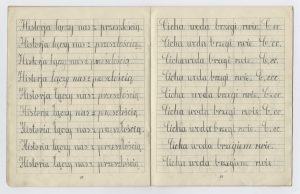 Historja łączy nas z przeszłością.
Historja łączy nas z przeszłością.
Historja łączy nas z przeszłością.
Historja łączy nas z przeszłością.
Historja łączy nas z przeszłością.
Historja łączy nas z przeszłością.
Historja łączy nas z przeszłością.
Historja łączy nas z przeszłością.
Historja łączy nas z przeszłością.
Cicha woda brzegi rwie. C. cc.
Cicha woda brzegi rwie. C. cc.
Cicha woda brzegi rwie. C. cc.
Cicha woda brzegi rwie. C. cc.
Cicha woda brzegi rwie. C. cc.
Cicha woda brzegi rwie. C. cc.
Cicha woda brzegi rwie. C. cc.
Cicha woda brzegiem rwie.
Cicha woda brzegiem rwie.